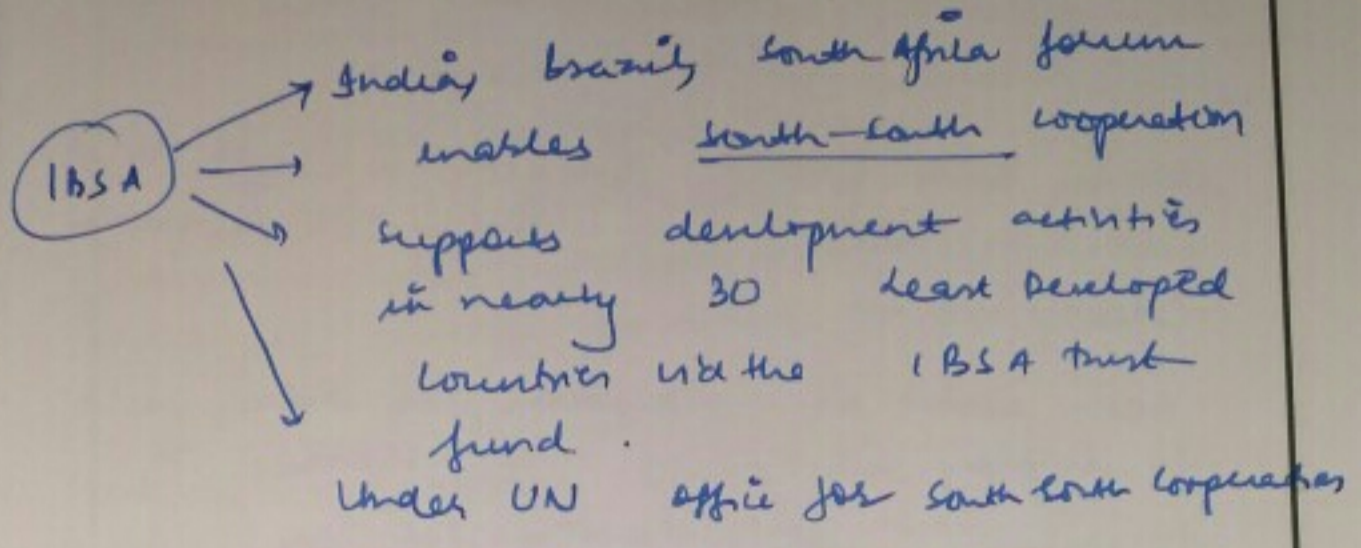 IBSA
India, brazil, south Africa forum
enables south-south cooperation
supports development activities
in nearly 30 Least Developed
countries via the IBSA trust
fund.
Under UN office for south south cooperation